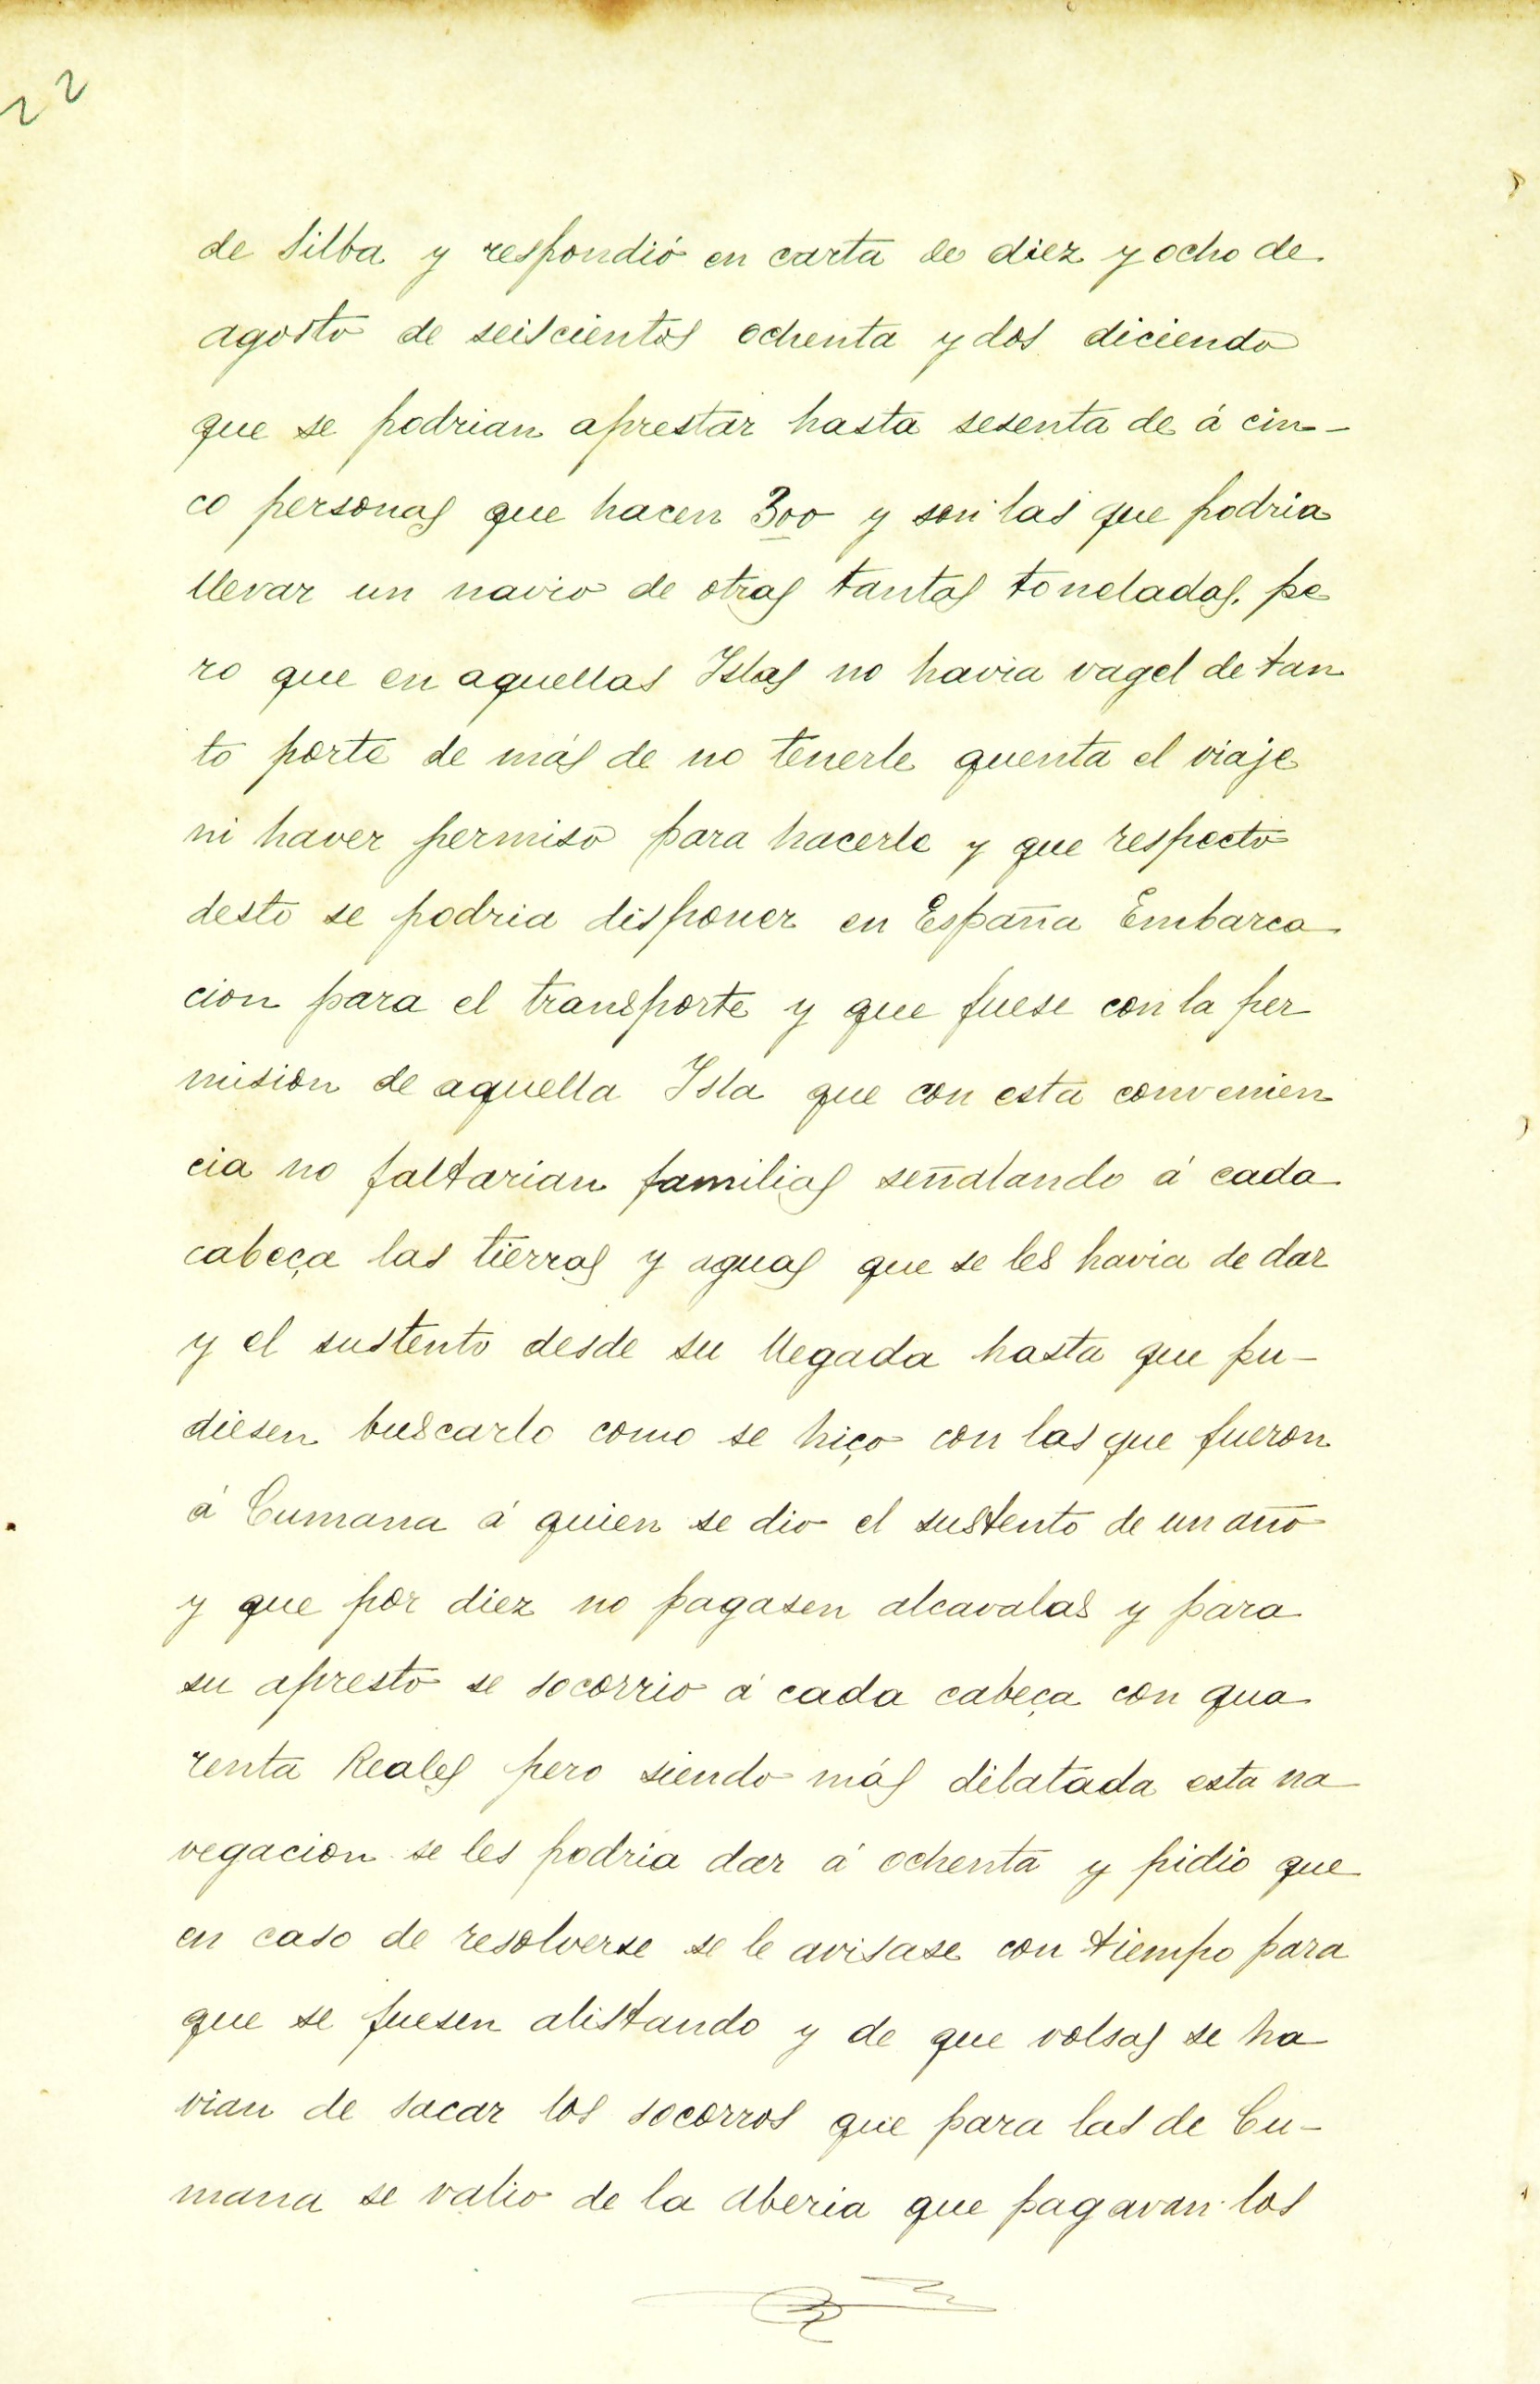 22
de Silba y respondió en carta de diez y ocho de
agosto de seiscientos ochenta y dos diciendo
que se podrian aprestar hasta sesenta de á cin-
co personas que hacen 300 y son las que podria
llevar un navio de otras tantas toneladas, pe
ro que en aquellas Islas no havia vagel de tan
to porte de más de no tenerle quenta el viaje
ni haver permiso para hacerle y que respecto
desto se podria disponer en España Embarca
cion para el transporte y que fuese con la per
mision de aquella Isla que con esta convenien
cia no faltarian familias señalando á cada
cabeça las tierras y aguas que se les havia de dar
y el sustento desde su llegada hasta que pu-
diesen buscarlo como se hiço con las que fueron
á Cumana á quien se dio el sustento de un año
y que por diez no pagasen alcavalas y para
su apresto se socorrio á cada cabeça con qua
renta Reales pero siendo más dilatada esta na
vegacion se les podria dar á ochenta y pidio que
en caso de resolverse se le avisase con tiempo para
que se fuesen alistando y de que volsas se ha
vian de sacar los socorros que para las de Cu-
mana se valio de la aberia que pagavan los